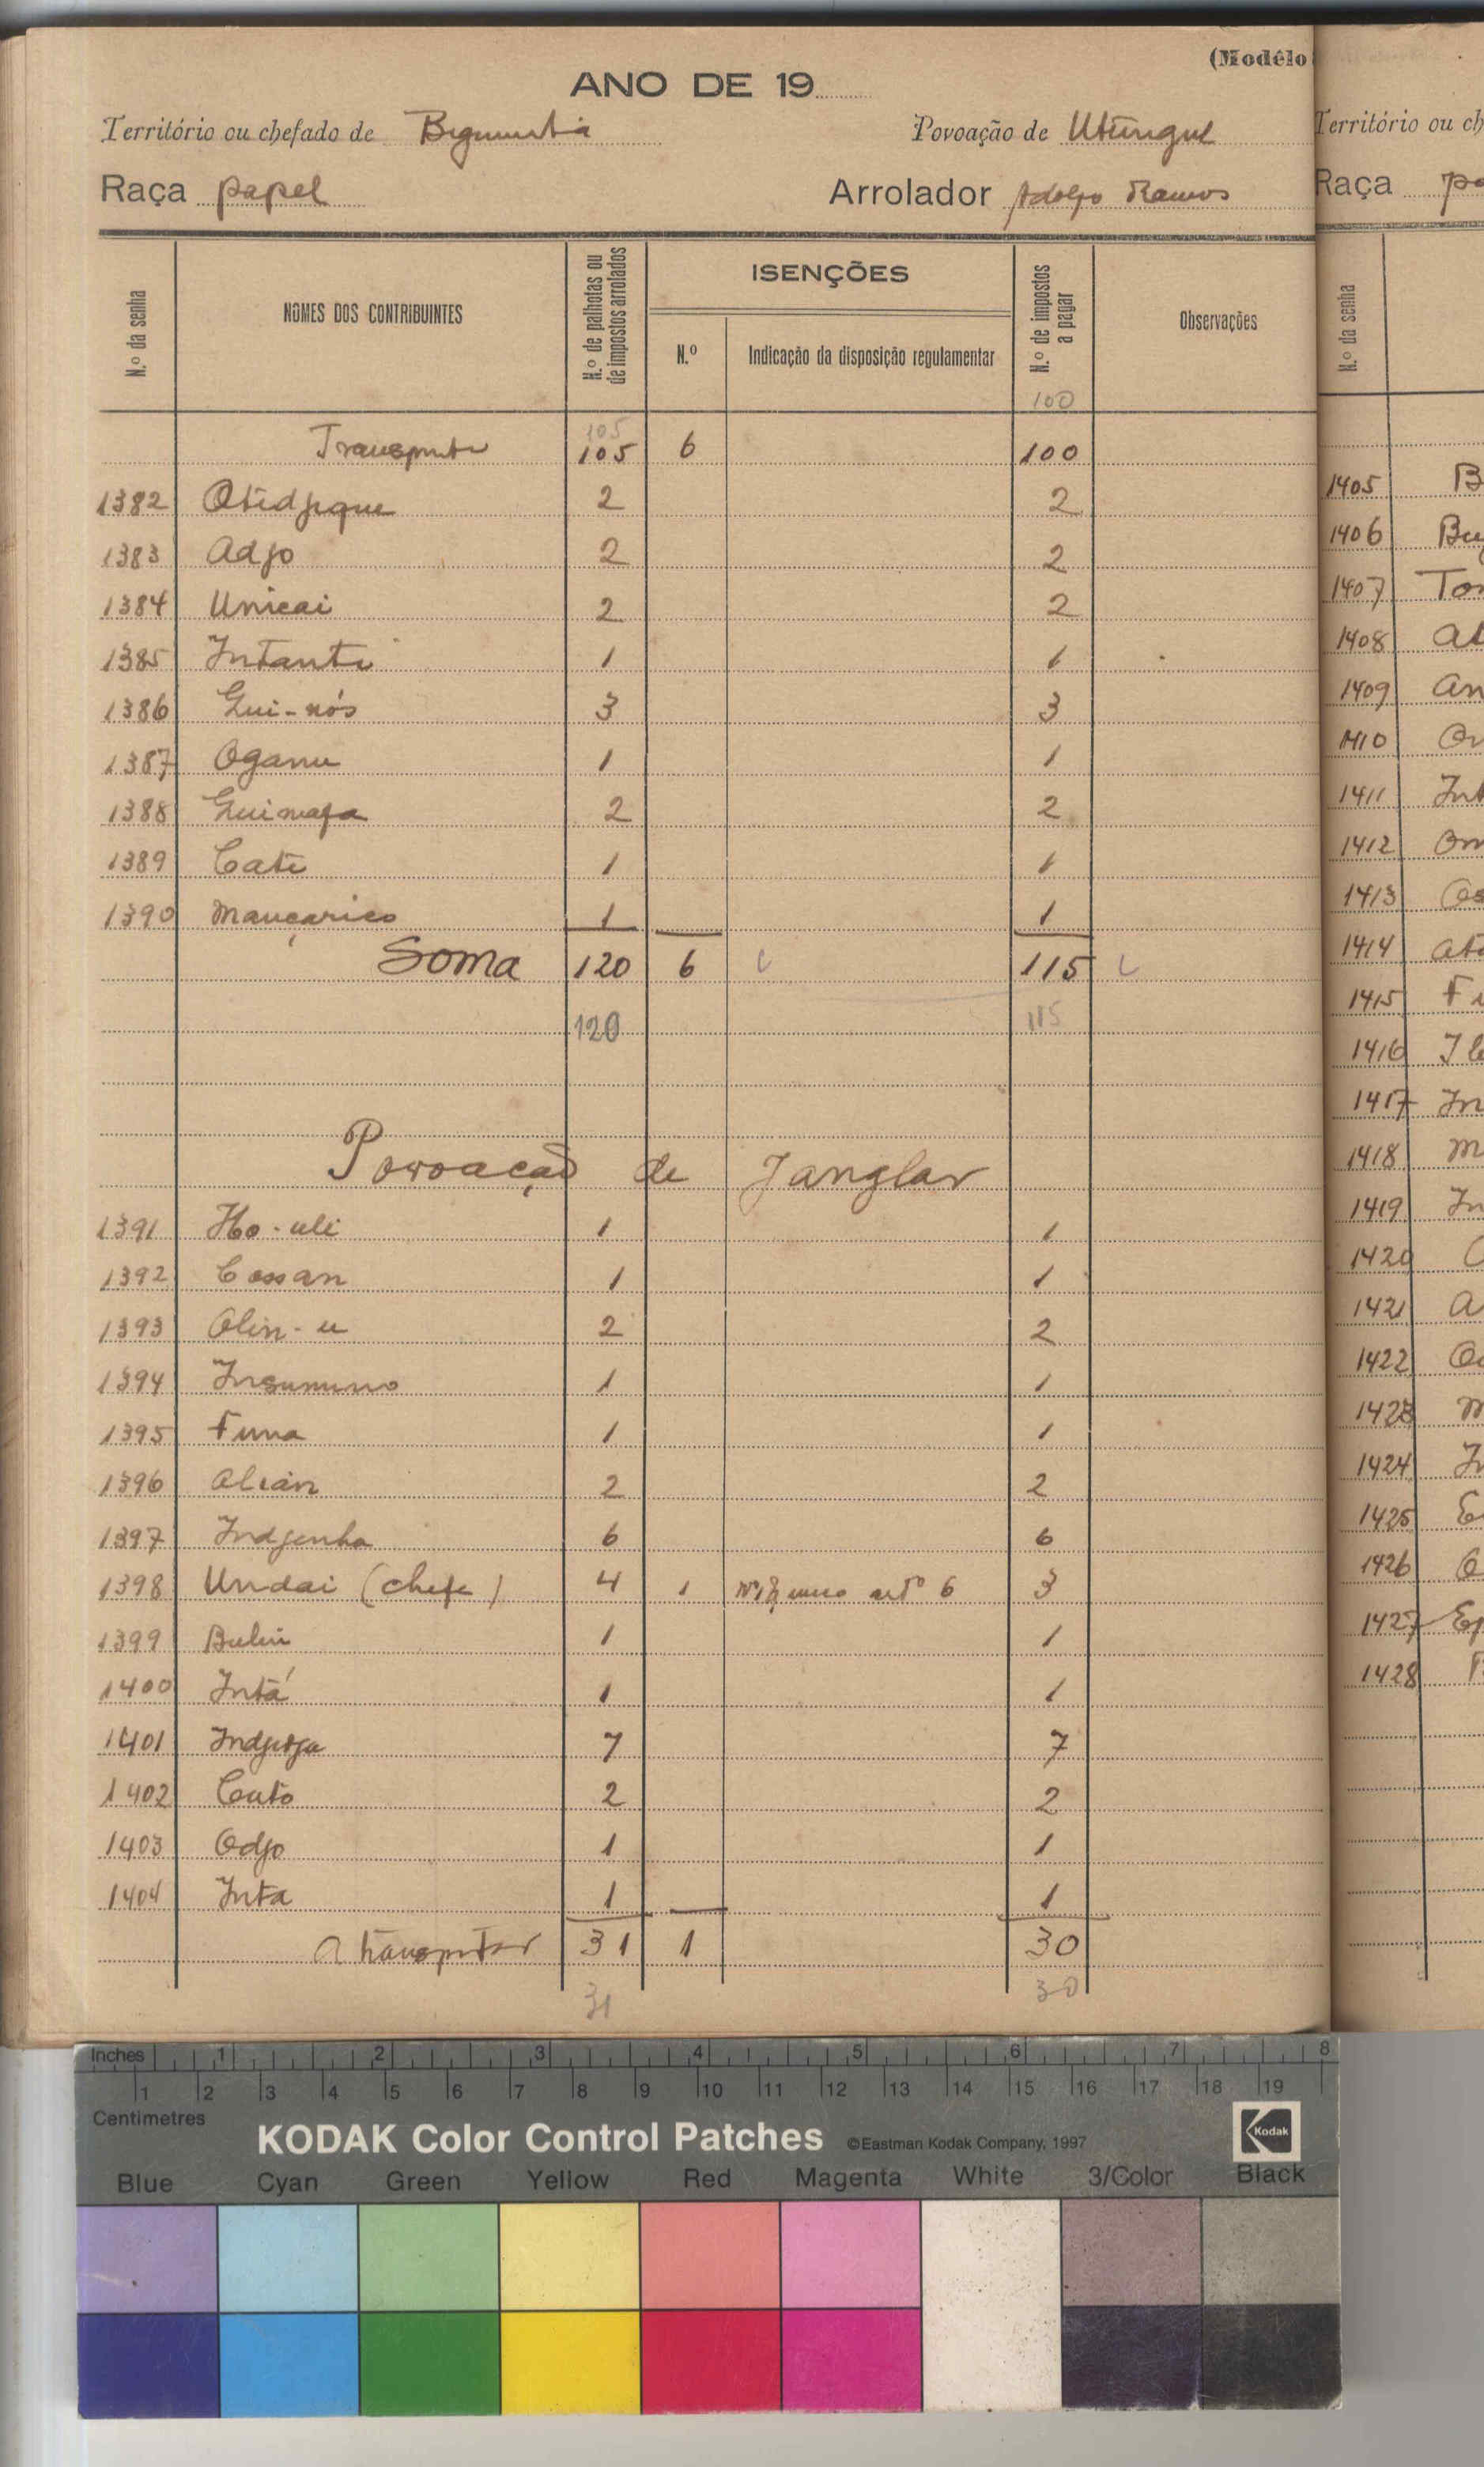 (Modêlo
ANO DE 19
Território ou chefado de Bigimita Povoação de Utungul
Raça papel Arrolador Adolfo Ramos
N.º da senha NOMES DOS CONTRIBUINTES N.º de palhotas ou de impostos arrolados ISENÇÕES N.º de impostos a pagar Observações
N.º Indicação da disposição regulamentar
100
105
Transporte 105 6 100
1382 Otidjique 2 2
1383 Adjo 2 2
1384 Unicai 2 2
1385 Intante 1 1
1386 Gui-nós 3 3
1387 Oganu 1 1
1388 Guinafa 2 2
1389 Cati 1 1
1390 Mançarico 1 1
Soma 120 6 115
120 115
Povoação de Janglar
1391 Ho-uli 1 1
1392 Cossan 1 1
1393 Olin-u 2 2
1394 Insumuno 1 1
1395 Funa 1 1
1396 Alián 2 2
1397 Indjenha 6 6
1398 Undai (chefe) 4 1 artº 6 3
1399 Bulin 1 1
1400 Intá 1 1
1401 7 7
1402 Cuto 2 2
1403 Odjo 1 1
1404 Inta 1 1
A transportar 31 1 30
31 30
Território ou ch
Raça pa
N.º da senha
1405 B
1406 Bu
1407 Tor
1408 At
1409 An
1410 On
1411 Int
1412 Om
1413 Os
1414 Ato
1415 Fu
1416
1417 In
1418 M
1419 In
1420 C
1421 A
1422
1423 M
1424 In
1425 E
1426 O
1427
1428
Inches 1 2 3 4 5 6 7 8
1 2 3 4 5 6 7 8 9 10 11 12 13 14 15 16 17 18 19
Centimetres
KODAK Color Control Patches ©Eastman Kodak Company, 1997 Kodak
Blue Cyan Green Yellow Red Magenta White 3/Color Black